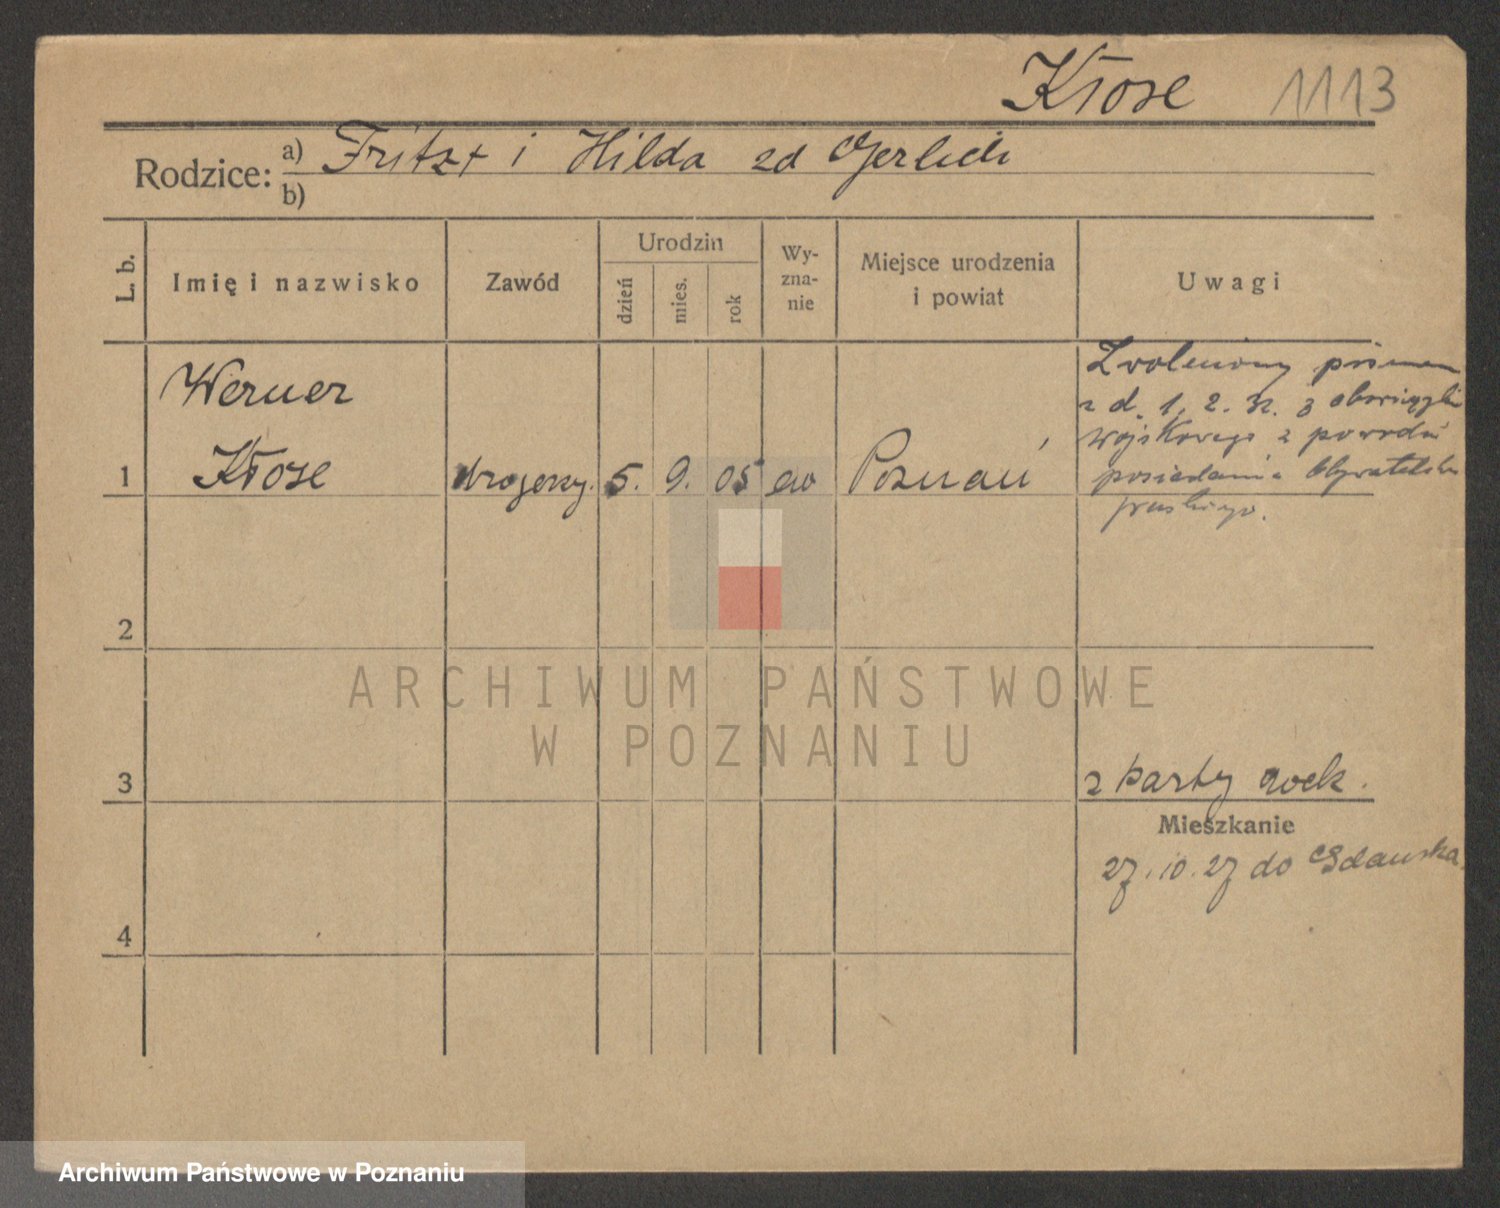 Kłose 1113
Rodzice: a) Fritz+ i Hilda zd Gerlich
b)
L. b. Imię i nazwisko Zawód Urodzin dzień mies. rok Wy-zna-nie Miejsce urodzenia i powiat Uwagi
Werner
1 Kłose drogerzy. 5. 9. 05 ew Poznań
Zwolniony pismem
z d. 1. 2. 32. z obowiązku
wojskowego z powodu
posiadania Obywatelstwa
pruskiego.
2
3
z karty rock.
Mieszkanie
27.10.27 do Gdańska
4
ARCHIWUM PAŃSTWOWE
W POZNANIU
Archiwum Państwowe w Poznaniu